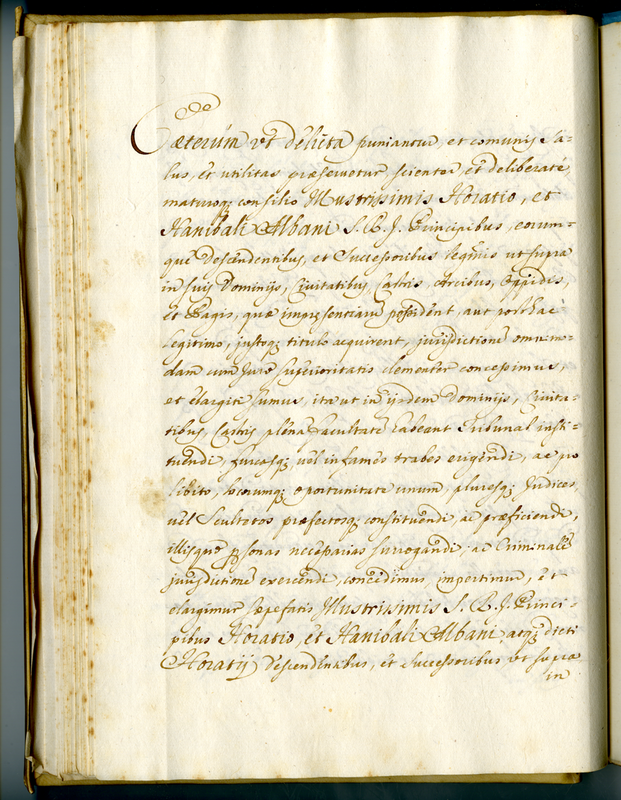 Cæterum vt delicta puniantur, et comunis sa-
lus, et utilitas præservetur scienter, et deliberate
maturoq; consilio Illustrissimis Horatio, et
Hanibali Albani S. R. I. Principibus, eorum-
que descendentibus, et Successoribus legitimis ut supra
in suis Dominijs, Civitatibus, Castris, Arcibus, Oppidis,
et Pagis, quæ impręsentiarum possident, aut posthac
legitimo, justoq; titulo acquirent, jurisdictionem omnimo-
dam cum Jure superioritatis clementer concessimus,
et elargiti sumus, ita ut in ijsdem Dominijs, Civita-
tibus, Castris plena facultate habeant Tribunal insti-
tuendi, furcasq; vel infames trabes erigendi, ac pro
libito, locorumq; oportunitate unum, pluresq; Judices,
vel Scultetos præfectosq; constituendi, ac præficiendi,
illisque personas necessarias surrogandi, ac Criminale
jurisdictione exercendi, concedimus, impertimur, et
elargimur sępefatis Illustrissimis S. R. I. Princi-
pibus Horatio, et Hanibali Albani, aeq; dicti
Horatij Descendentibus, et Successoribus vt supra
in